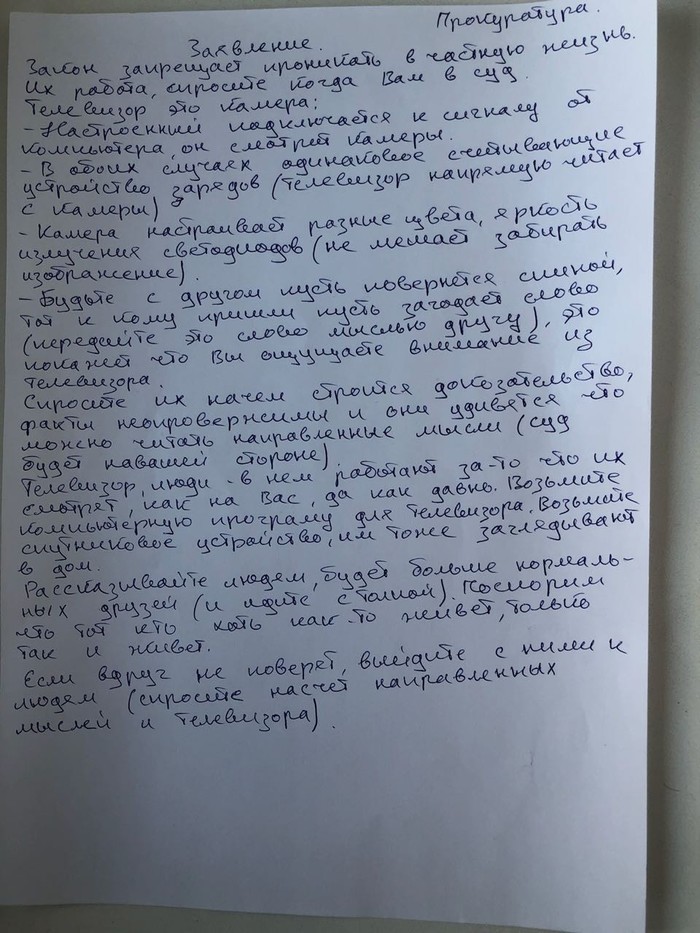 Прокуратура.
Заявление.
Закон запрещает проникать в частную жизнь.
Их работа, спросите когда Вам в суд.
Телевизор это камера:
- Настроенный подключается к сигналу от
компьютера, он смотрит камеры.
- В обоих случаях одинаковое считывающие
устройство зарядов (телевизор напрямую читает
с камеры)
- Камера настраивает разные цвета, яркость
излучения светодиодов (не мешает забирать
изображение).
- Будьте с другом пусть повернется спиной,
тот к кому пришли пусть загадает слово
(передайте это слово мыслью другу), это
покажет что Вы ощущаете внимание из
телевизора.
Спросите их на чем строится доказательство,
факты неопровержимы и они удивятся что
можно читать направленные мысли (суд
будет на вашей стороне).
Телевизор, люди в нем работают за-то что их
смотрят, как на Вас, да как давно. Возьмите
компьютерную програму для телевизора. Возьмите
спутниковое устройство, им тоже заглядывают
в дом.
Рассказывайте людям, будет больше нормаль-
ных друзей (и идите с толпой). Поспорим
что тот кто хоть как-то живет, только
так и живет.
Если вдруг не поверят, выйдите с ними к
людям (спросите насчет направленных
мыслей и телевизора).